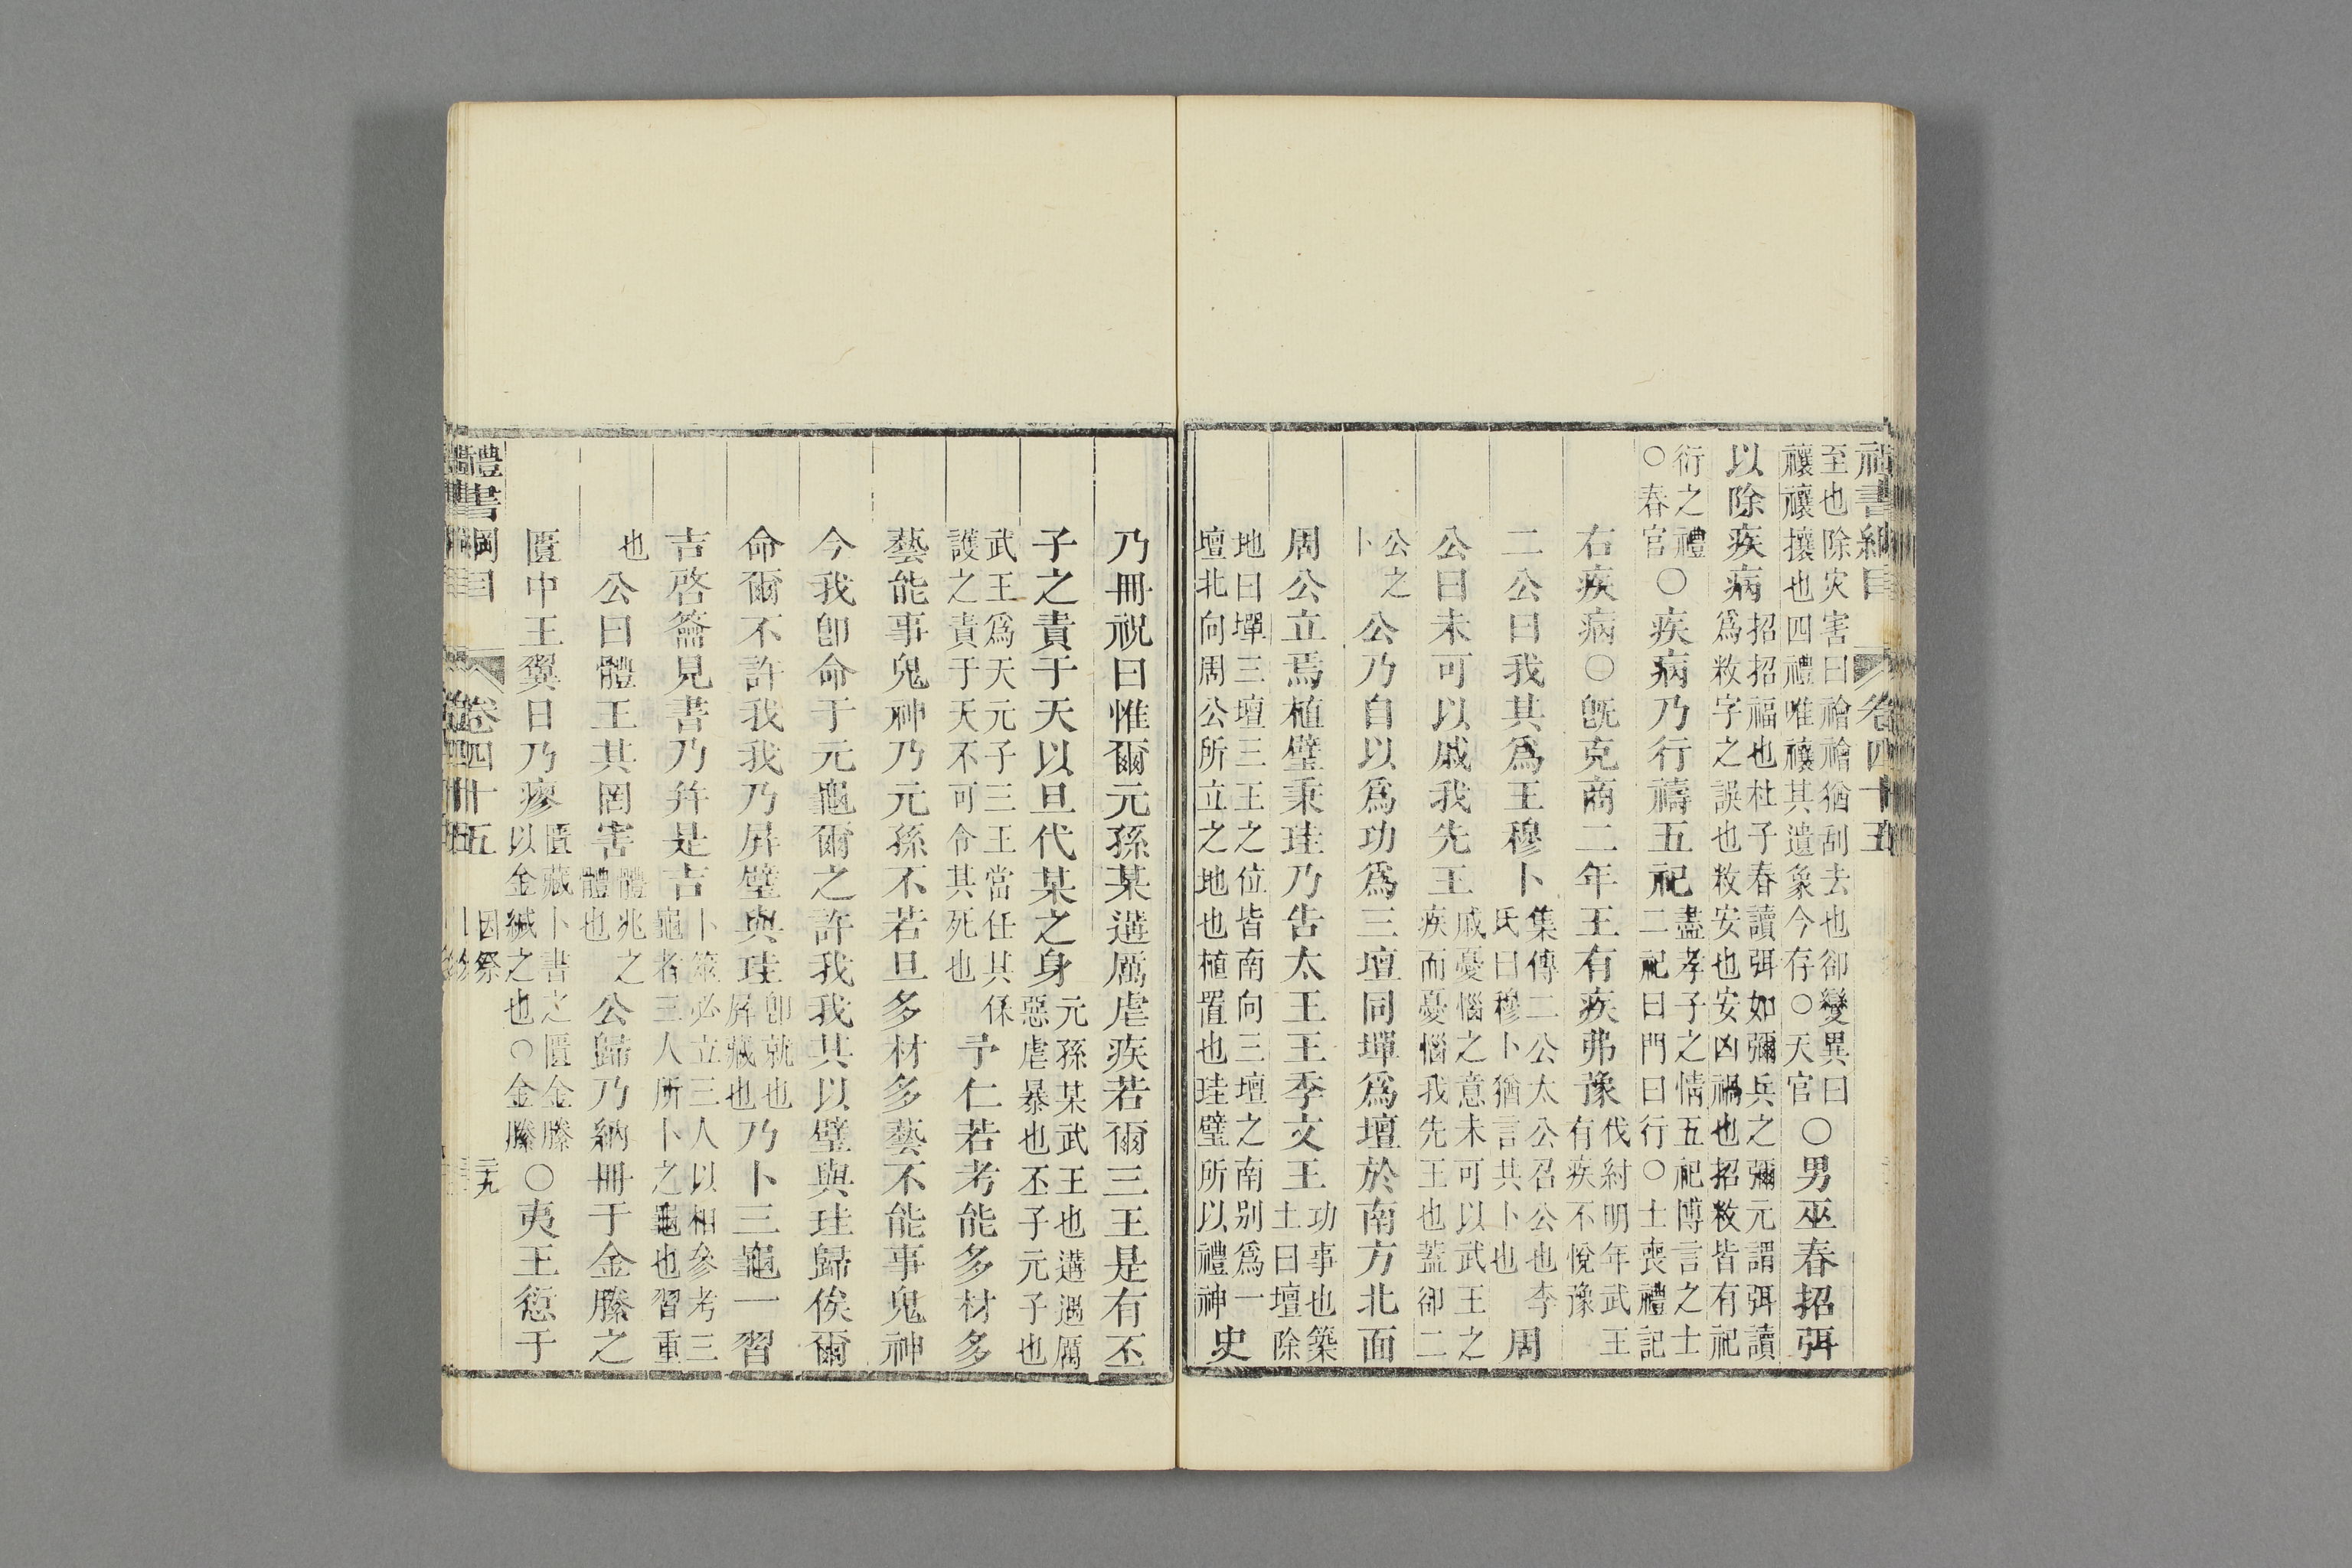 禮書綱目 卷四十五
至也除灾害曰禬禬猶刮去也卻變異曰
禳禳攘也四禮唯禳其遺象今存○天官
○男巫春招弭
以除疾病
招招福也杜子春讀弭如彌兵之彌元謂弭讀
爲敉字之誤也敉安也安凶禍也招敉皆有祀
衍之禮
○春官
○疾病乃行禱五祀
盡孝子之情五祀博言之士
二祀曰門曰行○士喪禮記
右疾病○旣克商二年王有疾弗豫
伐紂明年武王
有疾不悅豫
二公曰我其爲王穆卜
集傳二公太公召公也李
氏曰穆卜猶言共卜也
周
公曰未可以戚我先王
戚憂惱之意未可以武王之
疾而憂惱我先王也蓋卻二
公之
卜
公乃自以爲功爲三壇同墠爲壇於南方北面
周公立焉植璧秉珪乃告太王王季文王
功事也築
土曰壇除
地曰墠三壇三王之位皆南向三壇之南别爲一
壇北向周公所立之地也植置也珪璧所以禮神
史
乃冊祝曰惟爾元孫某遘厲虐疾若爾三王是有丕
子之責于天以旦代某之身
元孫某武王也遘遇厲
惡虐暴也丕子元子也
武王爲天元子三王當任其保
護之責于天不可令其死也
予仁若考能多材多
藝能事鬼神乃元孫不若旦多材多藝不能事鬼神
今我卽命于元龜爾之許我我其以璧與珪歸俟爾
命爾不許我我乃屛璧與珪
卽就也
屛藏也
乃卜三龜一習
吉啓籥見書乃并是吉
卜筮必立三人以相參考三
龜者三人所卜之龜也習重
也
公曰體王其罔害
體兆之
體也
公歸乃納冊于金縢之
匱中王翼日乃瘳
匱藏卜書之匱金縢
以金緘之也○金縢
○夷王愆于
禮書綱目 卷四十五 因祭 二九